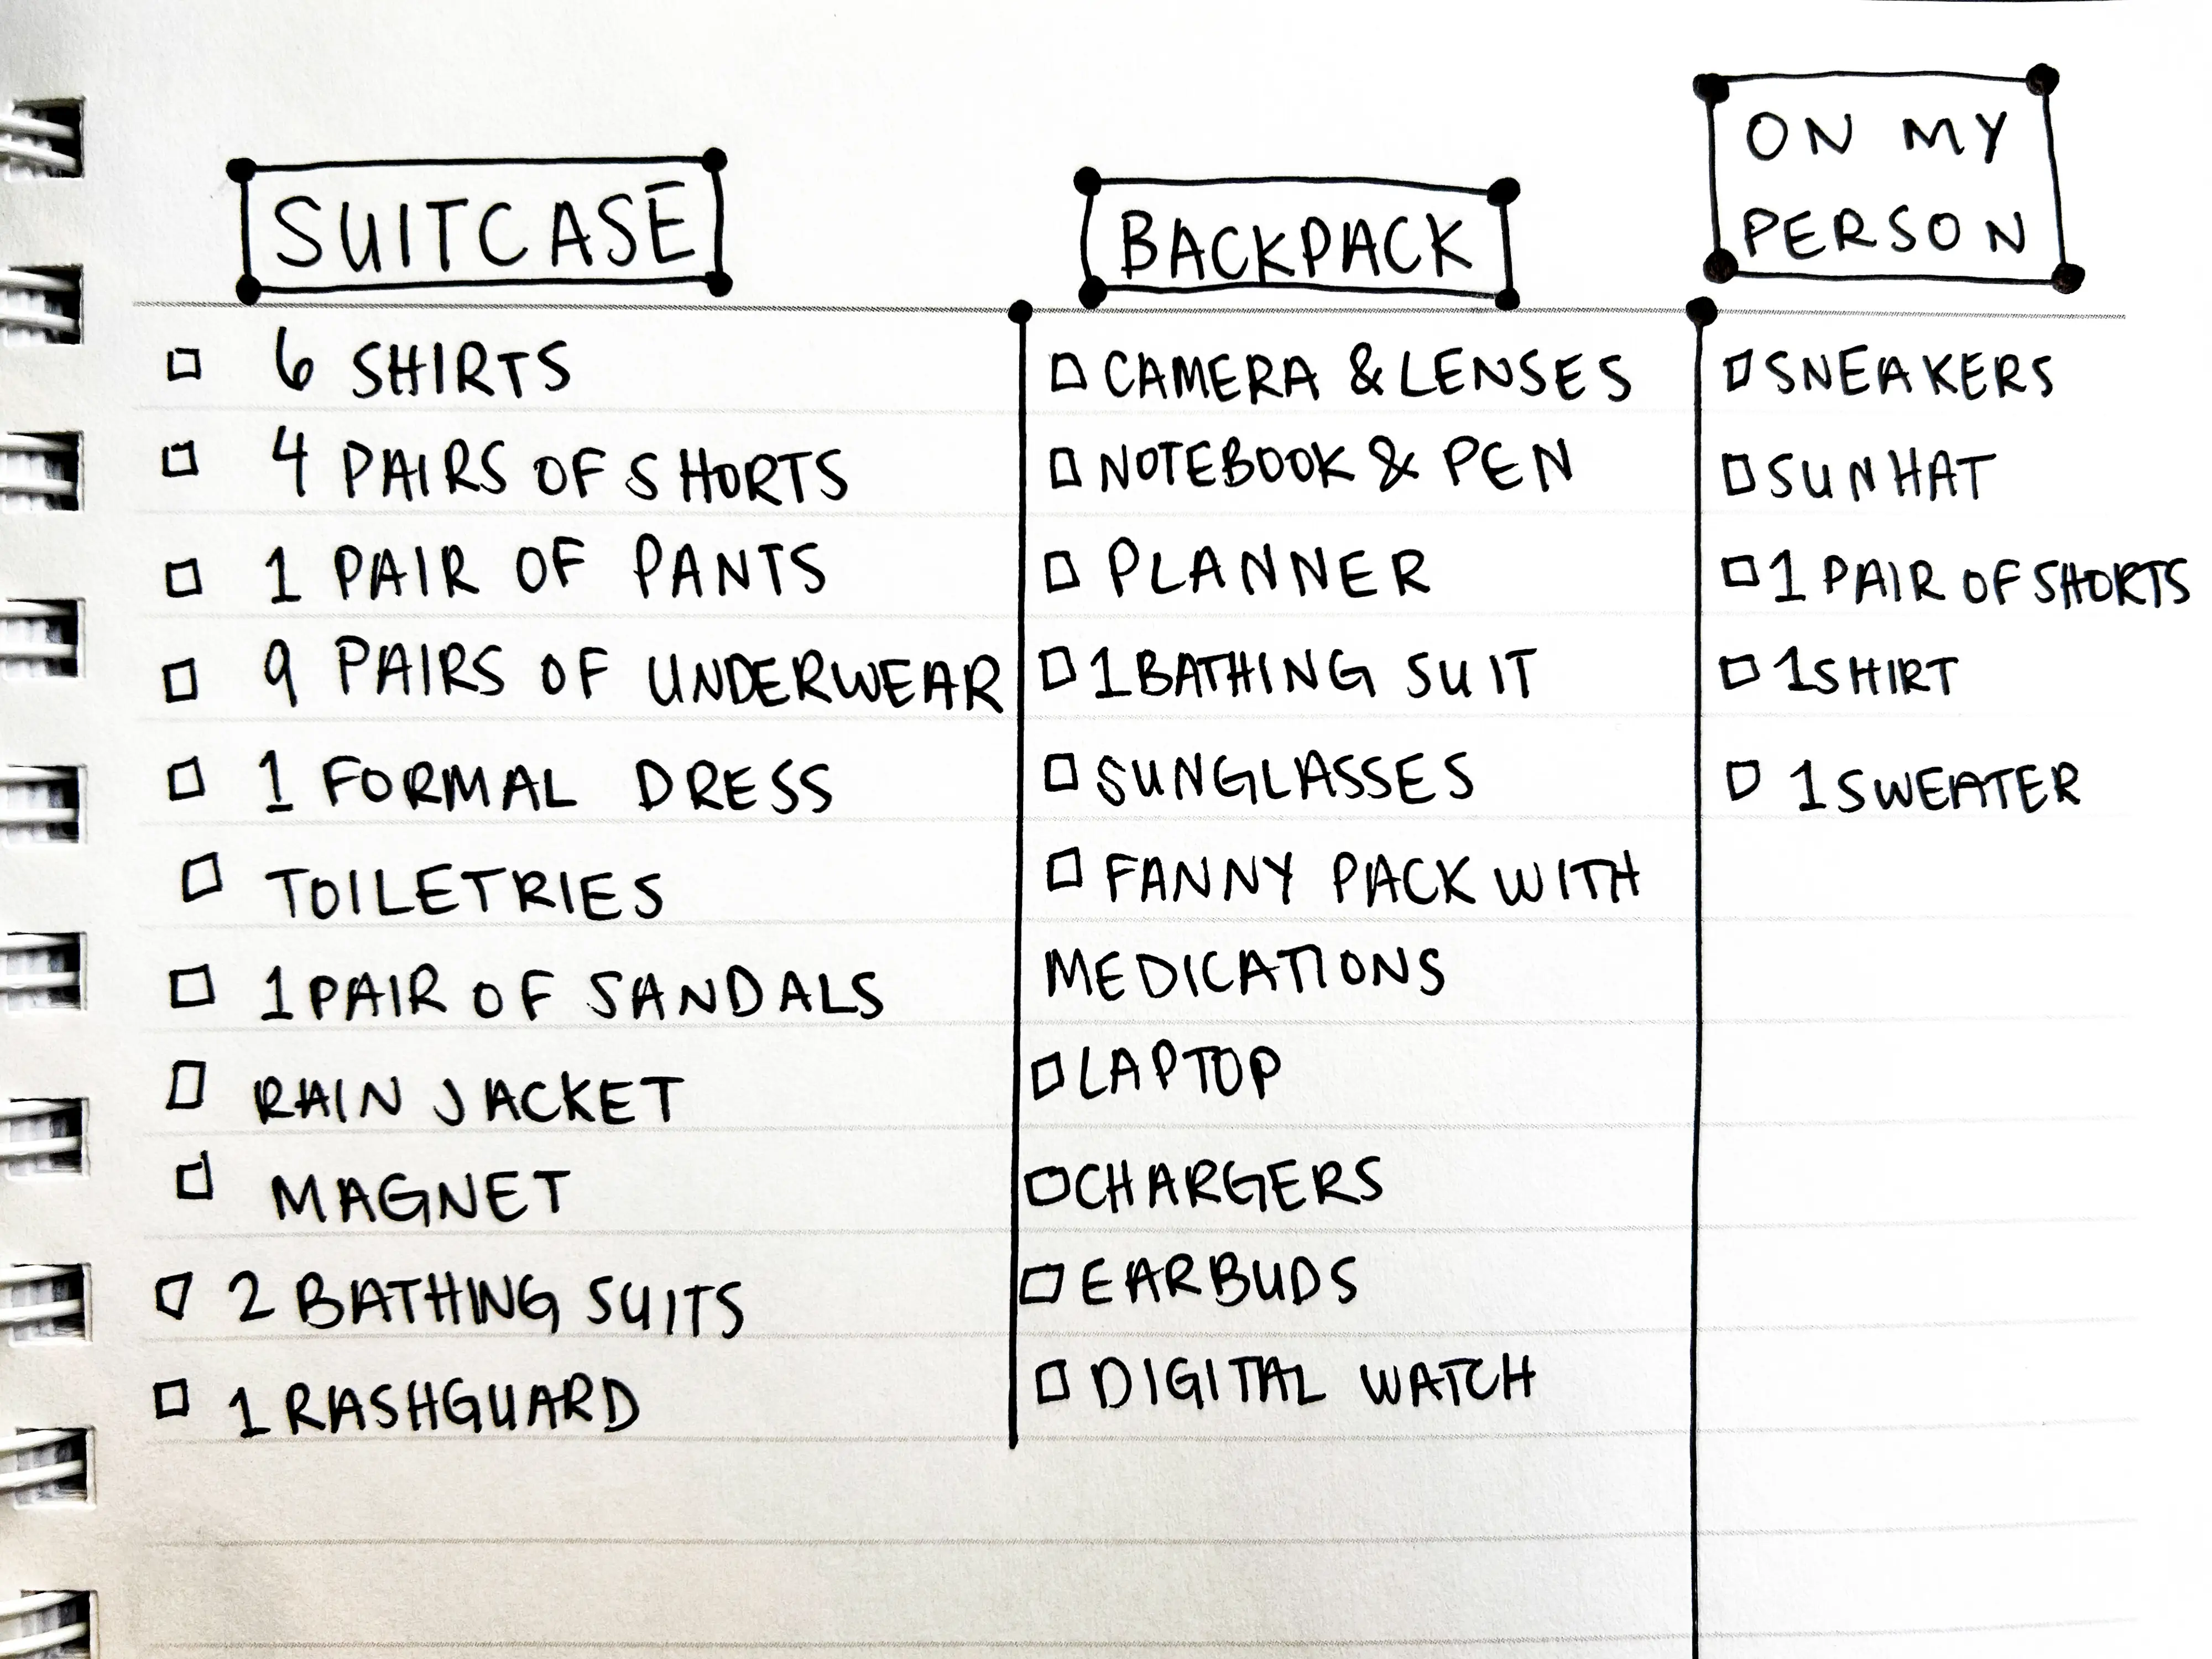 SUITCASE
6 SHIRTS
4 PAIRS OF SHORTS
1 PAIR OF PANTS
9 PAIRS OF UNDERWEAR
1 FORMAL DRESS
TOILETRIES
1 PAIR OF SANDALS
RAIN JACKET
MAGNET
2 BATHING SUITS
1 RASHGUARD
BACKPACK
CAMERA & LENSES
NOTEBOOK & PEN
PLANNER
1 BATHING SUIT
SUNGLASSES
FANNY PACK WITH
MEDICATIONS
LAPTOP
CHARGERS
EARBUDS
DIGITAL WATCH
ON MY
PERSON
SNEAKERS
SUNHAT
1 PAIR OF SHORTS
1 SHIRT
1 SWEATER